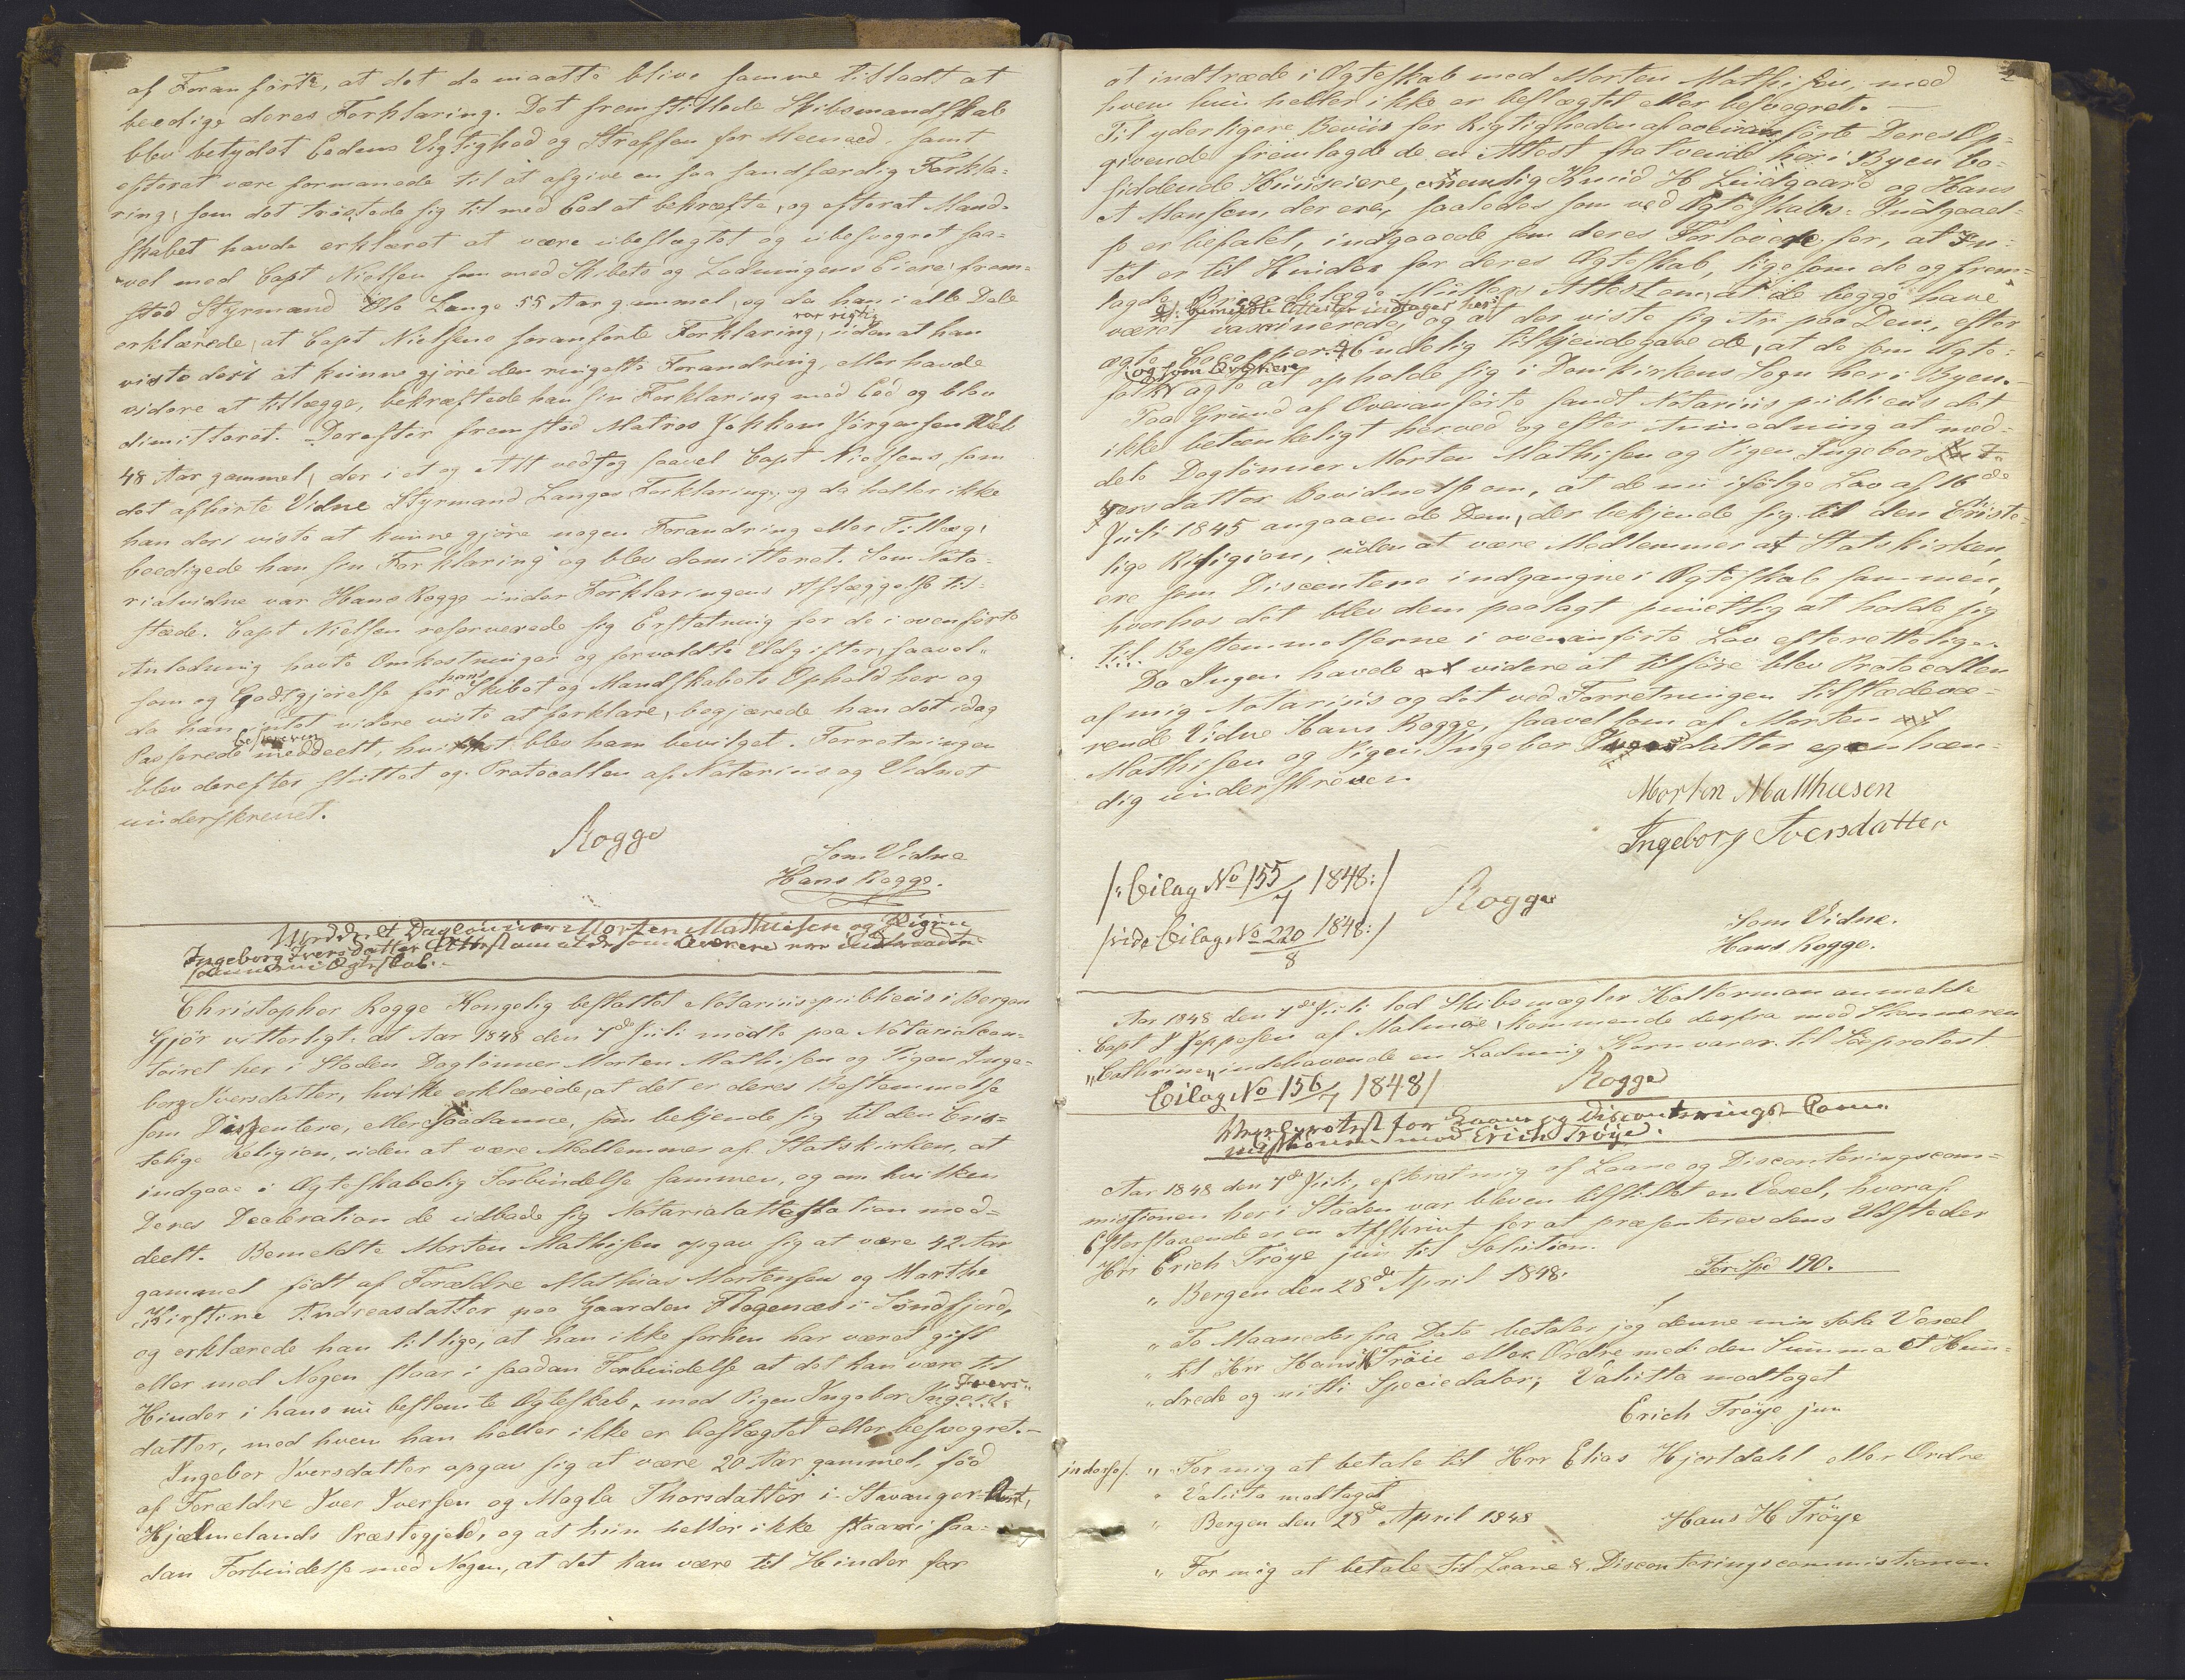 af Foranførte, at det da maatte blive samme tilladt at
beedige deres Forklaring. Det fremstillede Skibsmandskab
blev betydet Edens Vigtighed og Straffen for Meeneed, samt
efterat være formanede til at afgive en saa sandfærdig Forkla=
ring, som det trøstede sig til med Eed at bekræfte, og efterat Mand=
skabet havde erklæret at være ubeslægtet og ubesvogret saa=
vel med Capt Nielsen som med Skibets og Ladningens Eiere, frem=
stod Styrmand Ole Lange 55 Aar gammel, og da han i alle Dele
erklærede, at Capt Nielsens foranførte Forklaring var rigtig, uden at han
vidste deri at kunne gjøre den ringeste Forandring, eller havde
videre at tillægge, bekræftede han sin Forklaring med Eed og blev
dimitteret. Derefter fremstod Matros Jokkom Jörgensen
48 Aar gammel, der i et og Alt vedtog saavel Capt Nielsens som
det afhørte Vidne Styrmand Langes Forklaring, og da heller ikke
han deri viste at kunne gjøre nogen Forandring eller Tillæg,
beedigede han sin Forklaring og blev demitteret. Som Nota=
rialvidne var Hans Rogge under Forklaringens Aflæggelse til=
stæde. Capt Nielsen reserverede sig Erstatning for de i ovenførte
Anledning havte Omkostninger og forvoldte Udgifter, saavel=
som og Godtgjørelse for hans Skibet og Mandskabets Ophold her og
da han intet videre viste at forklare, begjærede han det idag
Passerede beskreven meddeelt, hvilket blev ham bevilget. Forretningen
blev derefter sluttet og Protocollen af Notarius og Vidnet
underskrevet.
Rogge
Som Vidne
Hans Rogge.
Meddelt Daglönner Morten Mathiesen og Pigen
Ingeborg Iversdatter Attest om at de som Qvækere ere indtraadte
sammen i Ægteskab.
Christopher Rogge Kongelig bestaltet Notarius publicus i Bergen
Gjør vitterligt: at Aar 1848 den 7de Juli mødte paa Notarialcon=
toiret her i Staden Daglønner Morten Mathisen og Pigen Inge=
borg Iversdatter, hvilke erklærede, at det er deres Bestemmelse
som Dissentere, eller Saadanne, som bekjende sig til den Cris=
telige Religion, uden at være Medlemmer af Statskirken, at
indgaae i Ægteskabelig Forbindelse sammen, og om hvilken
Deres Decleration de udbade sig Notarialattestation med=
deelt. Bemeldte Morten Mathisen opgav sig at være 42 Aar
gammel født af Forældre Mathias Mortensen og Marthe
Kirstine Andreasdatter paa Gaarden Flogenæs i Søndfjord,
og erklærede han tillige, at han ikke forhen har været gift
eller med Nogen staar i saadan Forbindelse at det kan være til
Hinder i hans nu bestemte Ægteskab, med Pigen Ingebor Ivers=
datter, med hvem han heller ikke er beslægtet eller besvogret.—
Ingebor Iversdatter opgav sig at være 20 Aar gammel, fød
af Forældre Iver Iversen og Magla Thorsdatter i Stavanger=Amt,
Hjælmelands Præstegjeld, og at hun heller ikke staar i saa=
dan Forbindelse med Nogen, at det kan være til Hinder for
2
at indtræde i Ægteskab med Morten Mathisen, med
hvem hun heller ikke er beslægtet eller besvogret.—
Til yderligere Beviis for Rigtigheden af ovenanførte Deres Op=
givende fremlagde de en Attest fra tvende her i Byen bo=
siddende Huuseiere, nemlig Knud H Lindgaard og Hans
A Monsen, der ere, saaledes som ved Ægteskabs=Indgaael=
se er befalet, indgaaede som deres Forlovere for, at In=
tet er til Hinder for deres Ægteskab, ligesom de og frem=
lagde Brigadelæge Attest om, at de begge have
q/: bemeldte Attester indtages her:/
været vaccinerede, og at der viste sig Ar paa Dem, efter
ægte Cocopper. q Endelig tilkjendegave de, at de som Ægte=
folk og som Qvækere agte at opholde sig i Domkirkens Sogn her i Byen.—
Paa Grund af Ovenanførte fandt Notarius publicus det
ikke betænkeligt herved og efter Anmodning at med=
dele Daglønner Morten Mathisen og Pigen Ingebor I=
versdatter Bevidnelse om, at de nu ifølge Lov af 16de
Juli 1845 angaaende Dem, der bekjende sig til den Criste=
lige Religion, uden at være Medlemmer af Statskirken,
ere som Discentere indgangne i Ægteskab sammen,
hvorhos det blev dem paalagt punctlig at holde sig
til Bestemmelserne i ovenanførte Lov efterrettelige.
Da Ingen havde videre at tilføre blev Protocollen
af mig Notarius og det ved Forretningen tilstædevæ=
rende Vidne Hans Rogge, saavel som af Morten
Mathisen og Pigen Ingebor Iversdatter egenhæn=
dig underskreven
Morten Matthiesen
Ingeborg Iversdatter
/: Bilag No 155/7 1848:/
Rogge
/vide Bilag No 220/8 1848:/
Som Vidne.
Hans Rogge.
Aar 1848 den 7de Juli lod Skibsmægler Kolterman anmelde
Capt J Jeppesen af Malmøe, kommende derfra med Skonnerten
"Cathrine" indehavende en Ladning Kornvarer til Søeprotest
Bilag No 156/7 1848/
Rogge
Vexelprotest for Laane og Disconterings=Com=
missionen mod Erich Tröye.
Aar 1848 den 7de Juli, efterat mig af Laane og Disconteringscom=
missionen her i Staden var bleven tilstillet en Vexel, hvoraf
Efterstaaende er en Afskrivt for at præsenteres dens Udsteder
Hrr Erich Tröye jun til Solution.
" Bergen den 28de April 1848. For Spd 190.
" To Maaneder fra Dato betaler jeg denne min sola Vexel
" til Hrr Hans H Tröie eller Ordre med den Summa Et Hun=
" drede og nitti Speciedaler; Valutta modtaget
Erich Tröye jun
indorso/. " For mig at betale til Hrr Elias Hjortdahl eller Ordre
" Valuta modtaget
" Bergen den 28de April 1848 Hans H Tröye
" For mig at betale til Laane & Disconteringscommissionen